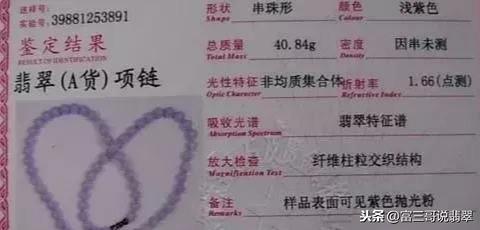 送样号:
实验号: 39881253891
鉴定结果
RESULT OF IDENTIFICATION
翡翠(A货)项链
形状 串珠形 颜色 浅紫色
Shape Colour
总质量 40.84g 密度 因串未测
Total Mass Density
光性特征 非均质集合体 折射率 1.66(点测)
Optic Character Refractive Index
吸收光谱 翡翠特征谱
Absorption Spectrum
放大检查 纤维柱粒交织结构
Magnification Test
备注 样品表面可见紫色抛光粉
Remarks
头条@富三哥说翡翠